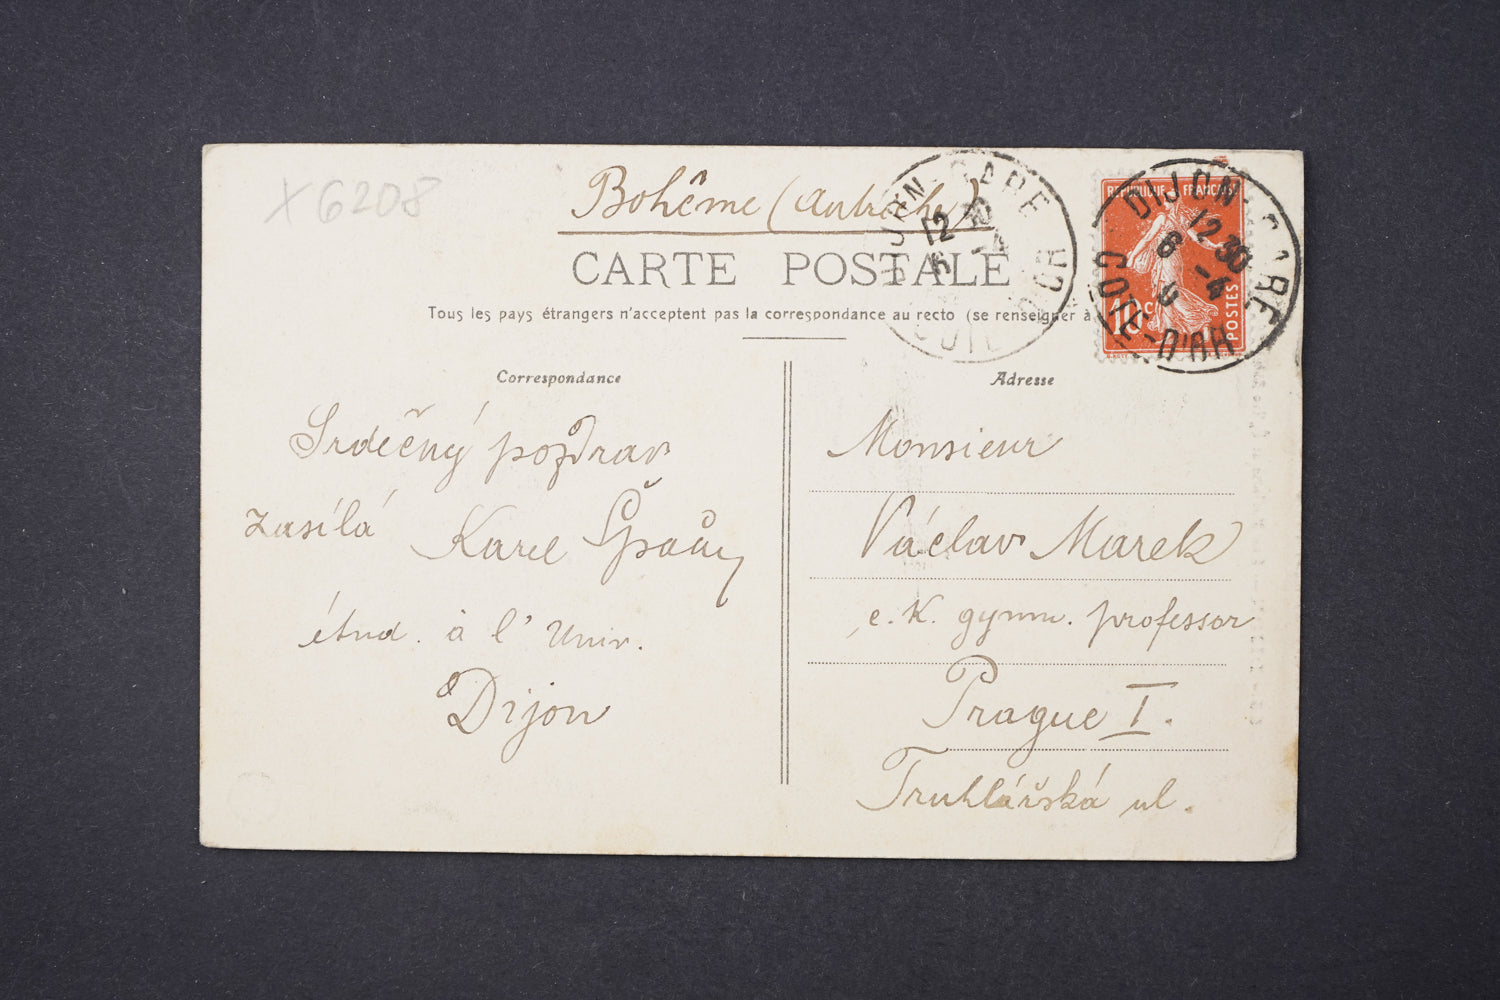 X 6208
Bohême (Autriche)
CARTE POSTALE
Tous les pays étrangers n'acceptent pas la correspondance au recto (se renseigner à
DIJON-GARE
12 30
6 -4
COTE-D'OR
REPUBLIQUE FRANÇAISE
10c
POSTES
DIJON-GARE
12 30
6 -4
COTE-D'OR
Correspondance
Srdečný pozdrav
zasílá Karel
étud. à l' Univ.
Dijon
Adresse
Monsieur
Václav Marek
c. K. gymn. professor
Prague I.
Truhlářská ul.